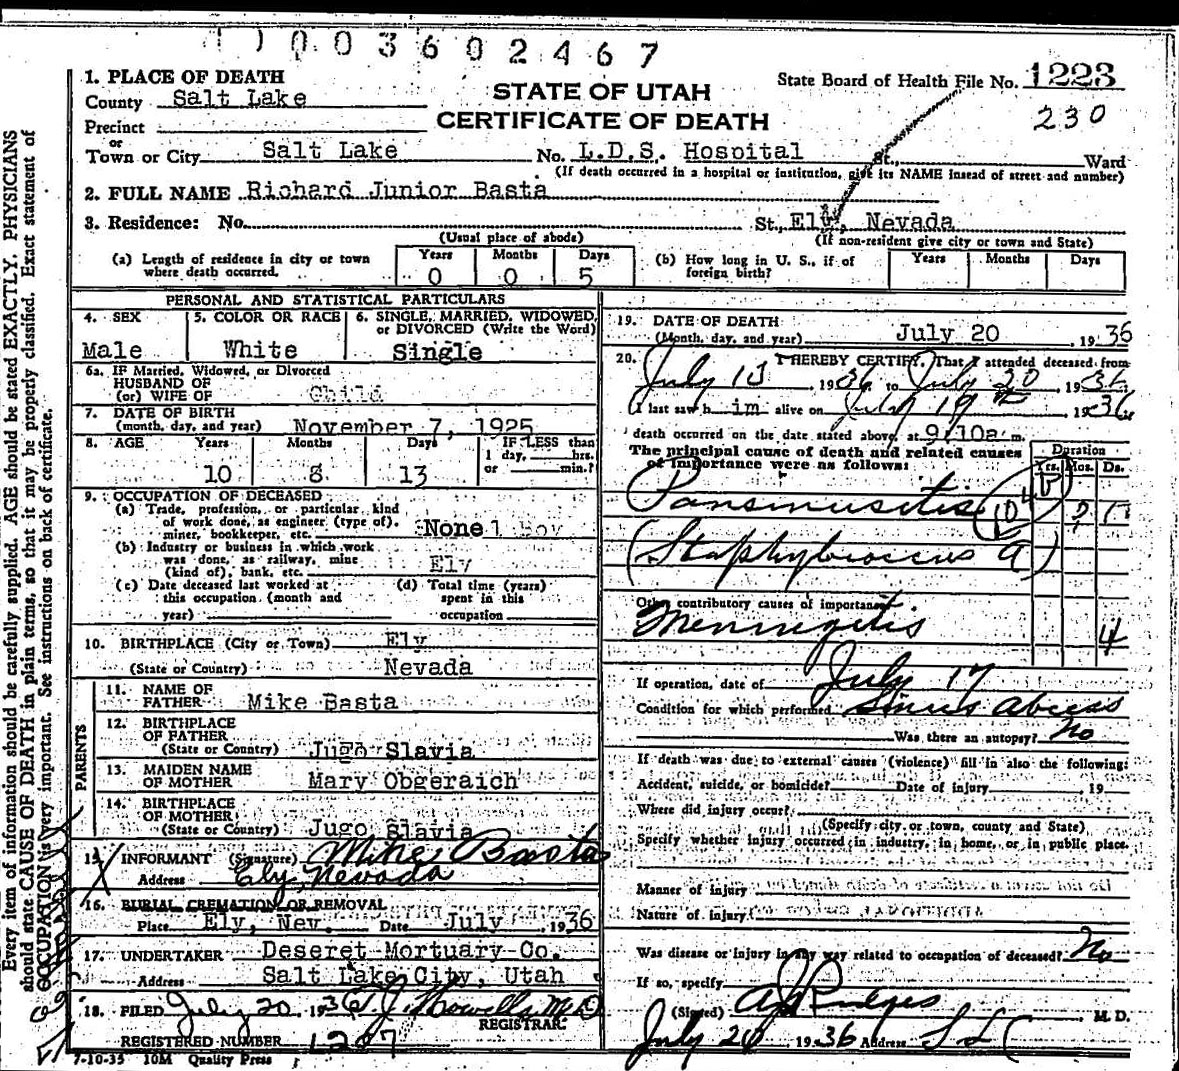 003602467
1. PLACE OF DEATH
County Salt Lake
STATE OF UTAH
State Board of Health File No. 1223
CERTIFICATE OF DEATH
230
Precinct
or
Town or City Salt Lake No. L.D.S. Hospital St., Ward
(If death occurred in a hospital or institution, give its NAME instead of street and number)
2. FULL NAME Richard Junior Basta
3. Residence: No. St., Ely, Nevada
(Usual place of abode) (If non-resident give city or town and State)
(a) Length of residence in city or town where death occurred. Years 0 Months 0 Days 5
(b) How long in U. S., if of foreign birth? Years Months Days
PERSONAL AND STATISTICAL PARTICULARS
4. SEX Male
5. COLOR OR RACE White
6. SINGLE, MARRIED, WIDOWED, or DIVORCED (Write the Word) Single
6a. IF Married, Widowed, or Divorced
HUSBAND OF
(or) WIFE OF Child
7. DATE OF BIRTH
(month, day, and year) November 7, 1925
8. AGE Years 10 Months 8 Days 13 IF LESS than 1 day, hrs. or min.?
9. OCCUPATION OF DECEASED
(a) Trade, profession, or particular kind
of work done, as engineer (type of),
miner, bookkeeper, etc. None
(b) Industry or business in which work
was done, as railway, mine
(kind of), bank, etc. Ely
(c) Date deceased last worked at
this occupation (month and
year)
(d) Total time (years)
spent in this
occupation
10. BIRTHPLACE (City or Town) Ely
(State or Country) Nevada
PARENTS
11. NAME OF
FATHER Mike Basta
12. BIRTHPLACE
OF FATHER
(State or Country) Jugo Slavia
13. MAIDEN NAME
OF MOTHER Mary Obgeraich
14. BIRTHPLACE
OF MOTHER
(State or Country) Jugo Slavia
15. INFORMANT (Signature) Mike Basta
Address Ely, Nevada
16. BURIAL, CREMATION OR REMOVAL
Place Ely, Nev. Date July 1936
17. UNDERTAKER Deseret Mortuary Co.
Address Salt Lake City, Utah
18. FILED July 20 1936 T.J. Howells, M.D.
REGISTRAR.
REGISTERED NUMBER 1207
7-10-35 10M Quality Press
19. DATE OF DEATH
(Month, day, and year) July 20 , 1936
20. I HEREBY CERTIFY, That I attended deceased from
July 15 , 1936 to July 20 , 1936
I last saw him alive on July 19th 1936
death occurred on the date stated above, at 9:10a m.
The principal cause of death and related causes
of importance were as follows:
Duration
Yrs. Mos. Ds.
Pansinusitis
(Staphylococcus a)
Other contributory causes of importance
Meningitis 4
If operation, date of July 17
Condition for which performed Sinus Abcess
Was there an autopsy? No
If death was due to external causes (violence) fill in also the following:
Accident, suicide, or homicide? Date of injury , 19
Where did injury occur?
(Specify city or town, county and State)
Specify whether injury occurred in industry, in home, or in public place.
Manner of injury
Nature of injury
Was disease or injury in any way related to occupation of deceased? No
If so, specify
(Signed) M. D.
July 20 1936 Address S L C
Every item of information should be carefully supplied. AGE should be stated EXACTLY. PHYSICIANS
should state CAUSE OF DEATH in plain terms, so that it may be properly classified. Exact statement of
OCCUPATION is very important. See instructions on back of certificate.